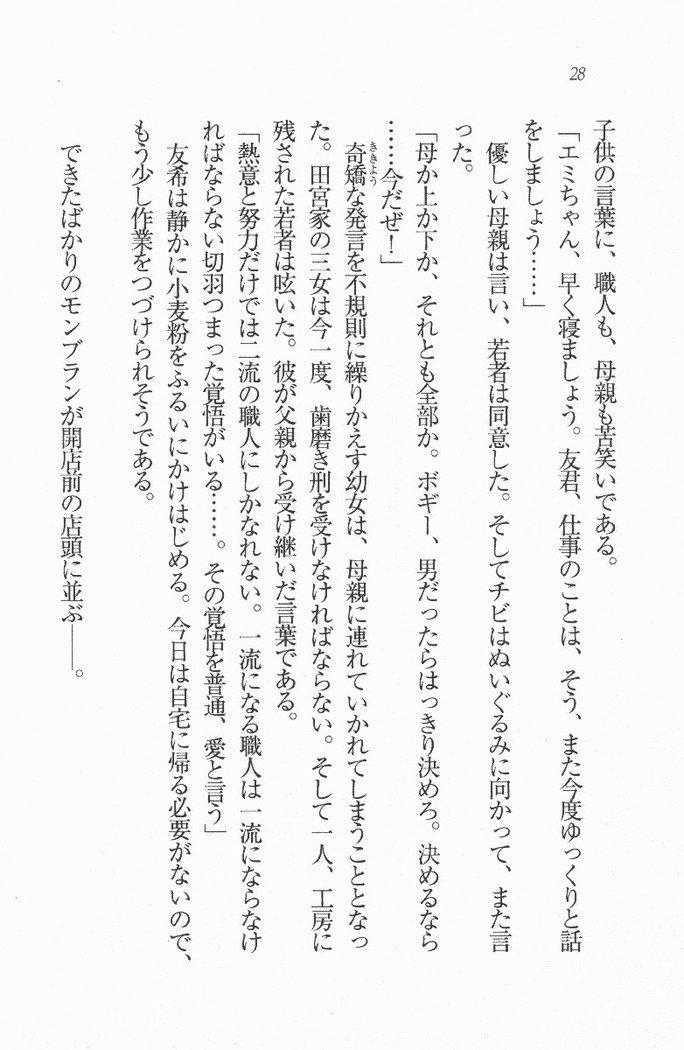 28
子供の言葉に、職人も、母親も苦笑いである。
「エミちゃん、早く寝ましょう。友君、仕事のことは、そう、また今度ゆっくりと話
をしましょう……」
優しい母親は言い、若者は同意した。そしてチビはぬいぐるみに向かって、また言
った。
「母か上か下か、それとも全部か。ボギー、男だったらはっきり決めろ。決めるなら
……今だぜ！」
奇矯な発言を不規則に繰りかえす幼女は、母親に連れていかれてしまうこととなっ
ききよう
た。田宮家の三女は今一度、歯磨き刑を受けなければならない。そして一人、工房に
残された若者は呟いた。彼が父親から受け継いだ言葉である。
「熱意と努力だけでは二流の職人にしかなれない。一流になる職人は一流にならなけ
ればならない切羽つまった覚悟がいる……。その覚悟を普通、愛と言う」
友希は静かに小麦粉をふるいにかけはじめる。今日は自宅に帰る必要がないので、
もう少し作業をつづけられそうである。
できたばかりのモンブランが開店前の店頭に並ぶ――。